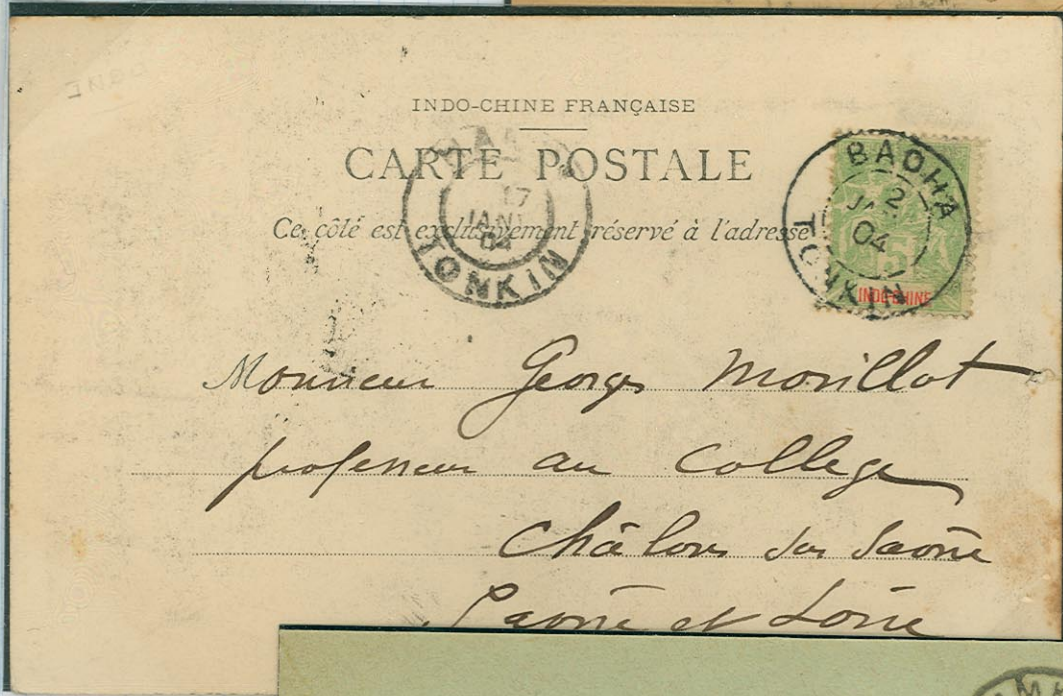 INDO-CHINE FRANÇAISE
CARTE POSTALE
Ce côté est exclusivement réservé à l'adresse
17
JANV
04
TONKIN
BAOHA
2
JA
04
TONKIN
5
INDO-CHINE
Monsieur Georges Morillot
professeur au College
Châlons sur Saône
Saône et Loire